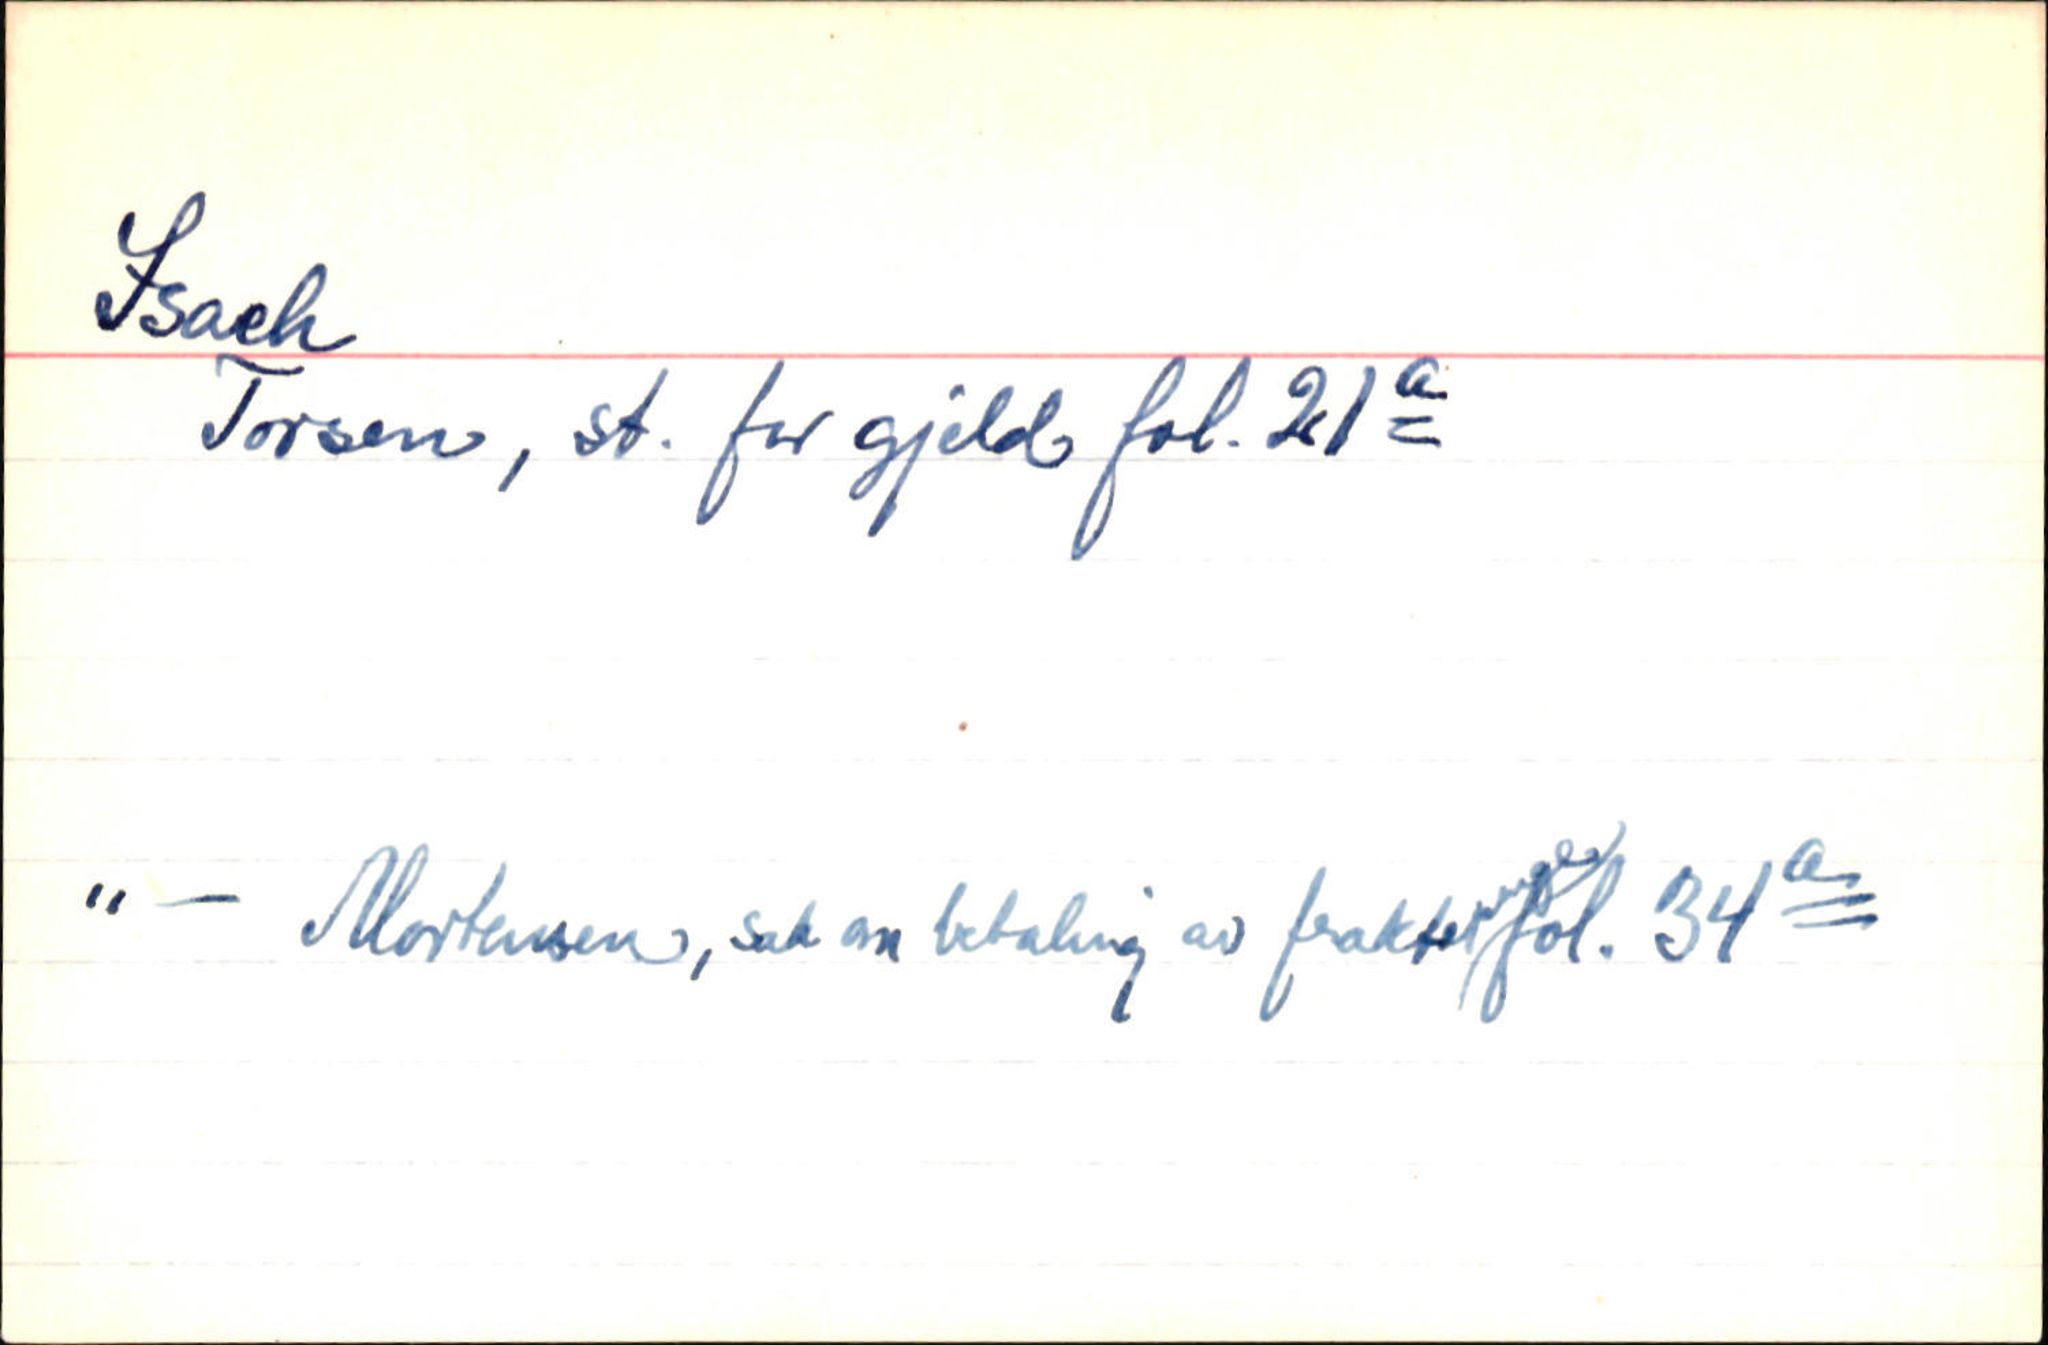 Isach
Torsen, st. for gjeld fol. 21a
"— Mortensen, sak om betaling av frakter fol. 34a